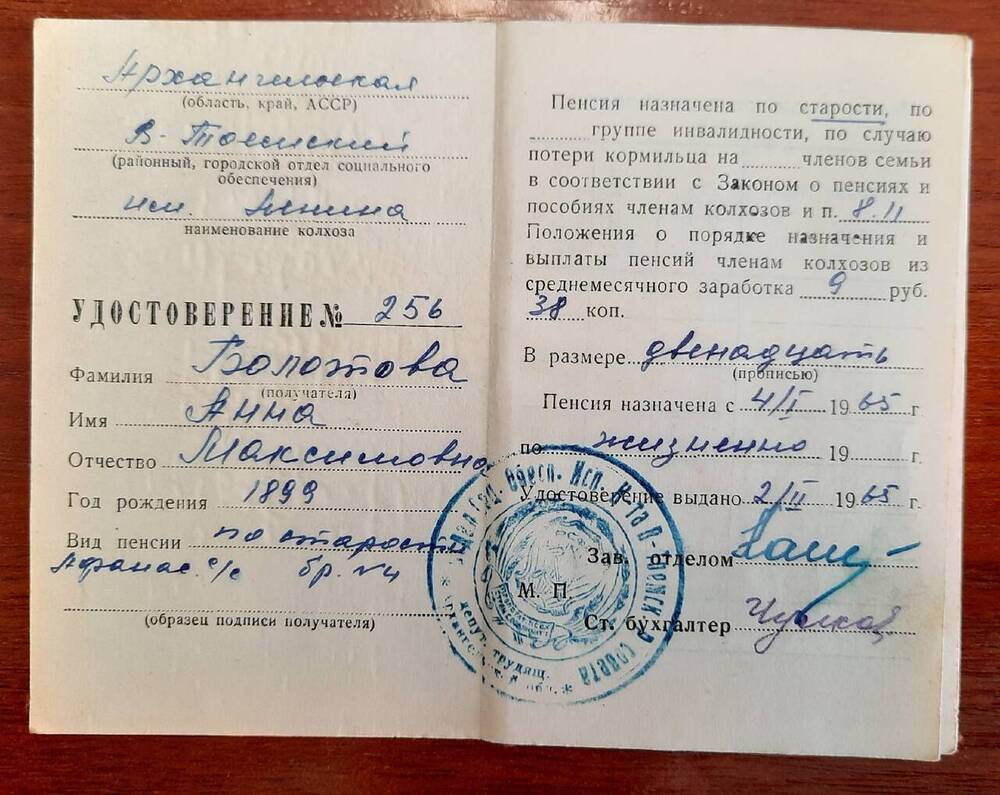 Архангельская
(область, край, АССР)
В-Тоемский
(районный, городской отдел социального
обеспечения)
им. Ленина
наименование колхоза
УДОСТОВЕРЕНИЕ № 256
Фамилия Болотова
(получателя)
Имя Анна
Отчество Максимовна
Год рождения 1899
Вид пенсии по старости
Афанас. с/с бр. №4
(образец подписи получателя)
Пенсия назначена по старости, по
группе инвалидности, по случаю
потери кормильца на членов семьи
в соответствии с Законом о пенсиях и
пособиях членам колхозов и п. 8.11
Положения о порядке назначения и
выплаты пенсий членам колхозов из
среднемесячного заработка 9 руб.
38 коп.
В размере двенадцать
(прописью)
Пенсия назначена с 4/I 1965 г.
по жизненно 19 г.
Удостоверение выдано 2/II 1965 г.
Зав. отделом
М. П.
Ст. бухгалтер
Обесп. Исп. К-та В-Тоемск Совета
депут. трудящ.
Архангельской обл.